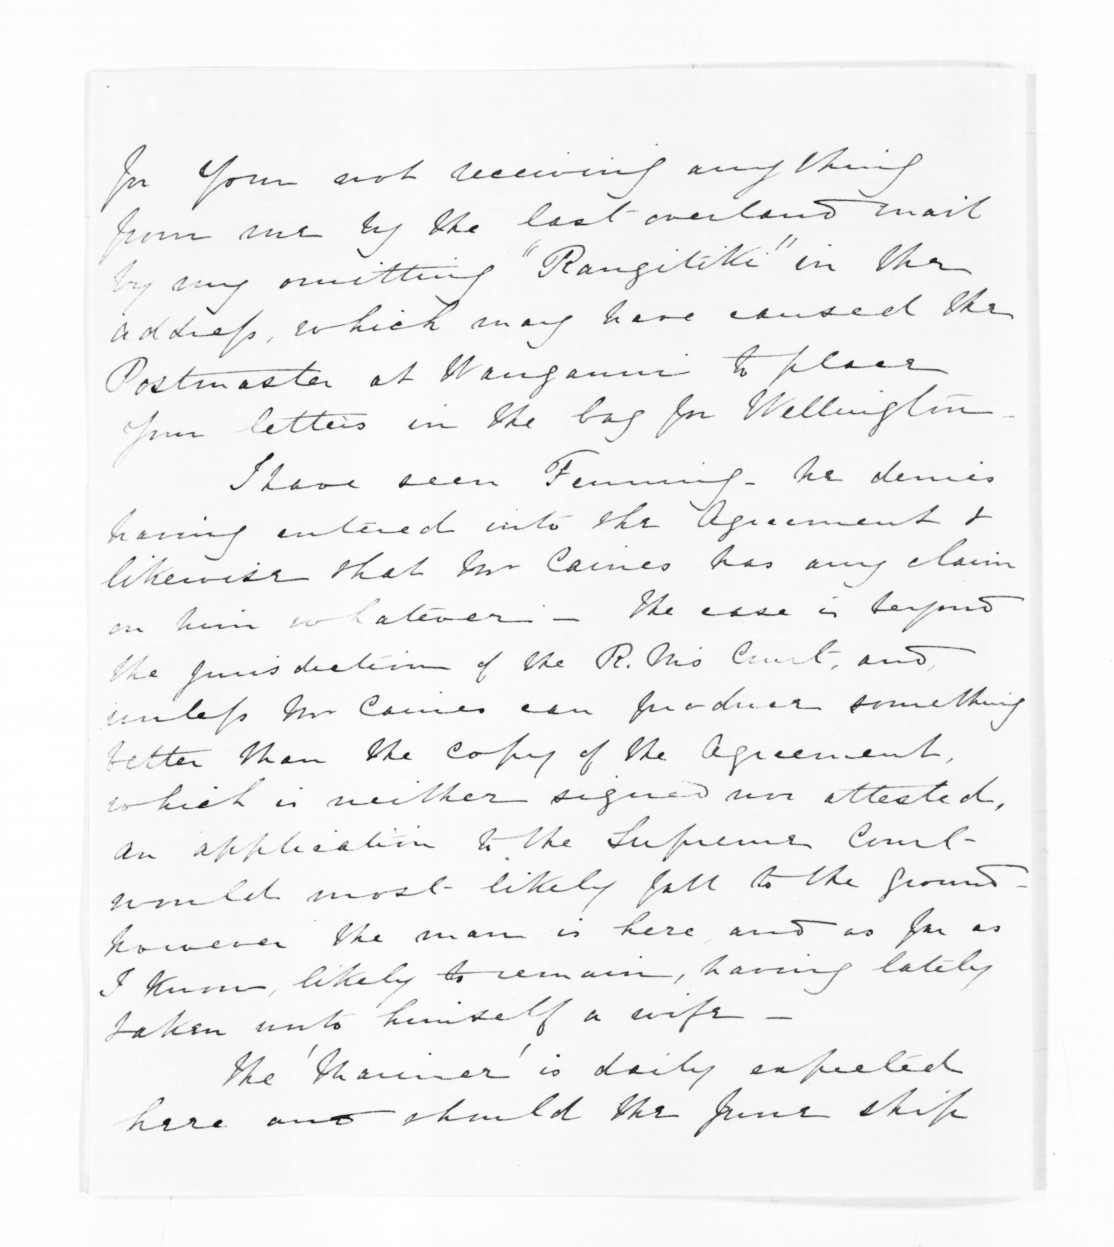 for your not receiving anything
from me by the last overland mail
by my omitting "Rangitiki" in the
address, which may have caused the
Postmaster at Wanganui to place
your letters in the bag for Wellington -
I have seen Fenning - he denies
having entered into the Agreement &
likewise that Mr Caines has any claim
on him whatever - The case is beyond
the jurisdiction of the R. M's Court, and,
unless Mr Caines can produce something
better than the copy of the Agreement,
which is neither signed nor attested,
an application to the Supreme Court
would most likely fall to the ground -
however the man is here and as far as
I know, likely to remain, having lately
taken unto himself a wife -
The 'Mariner' is daily expected
here and should the June ship